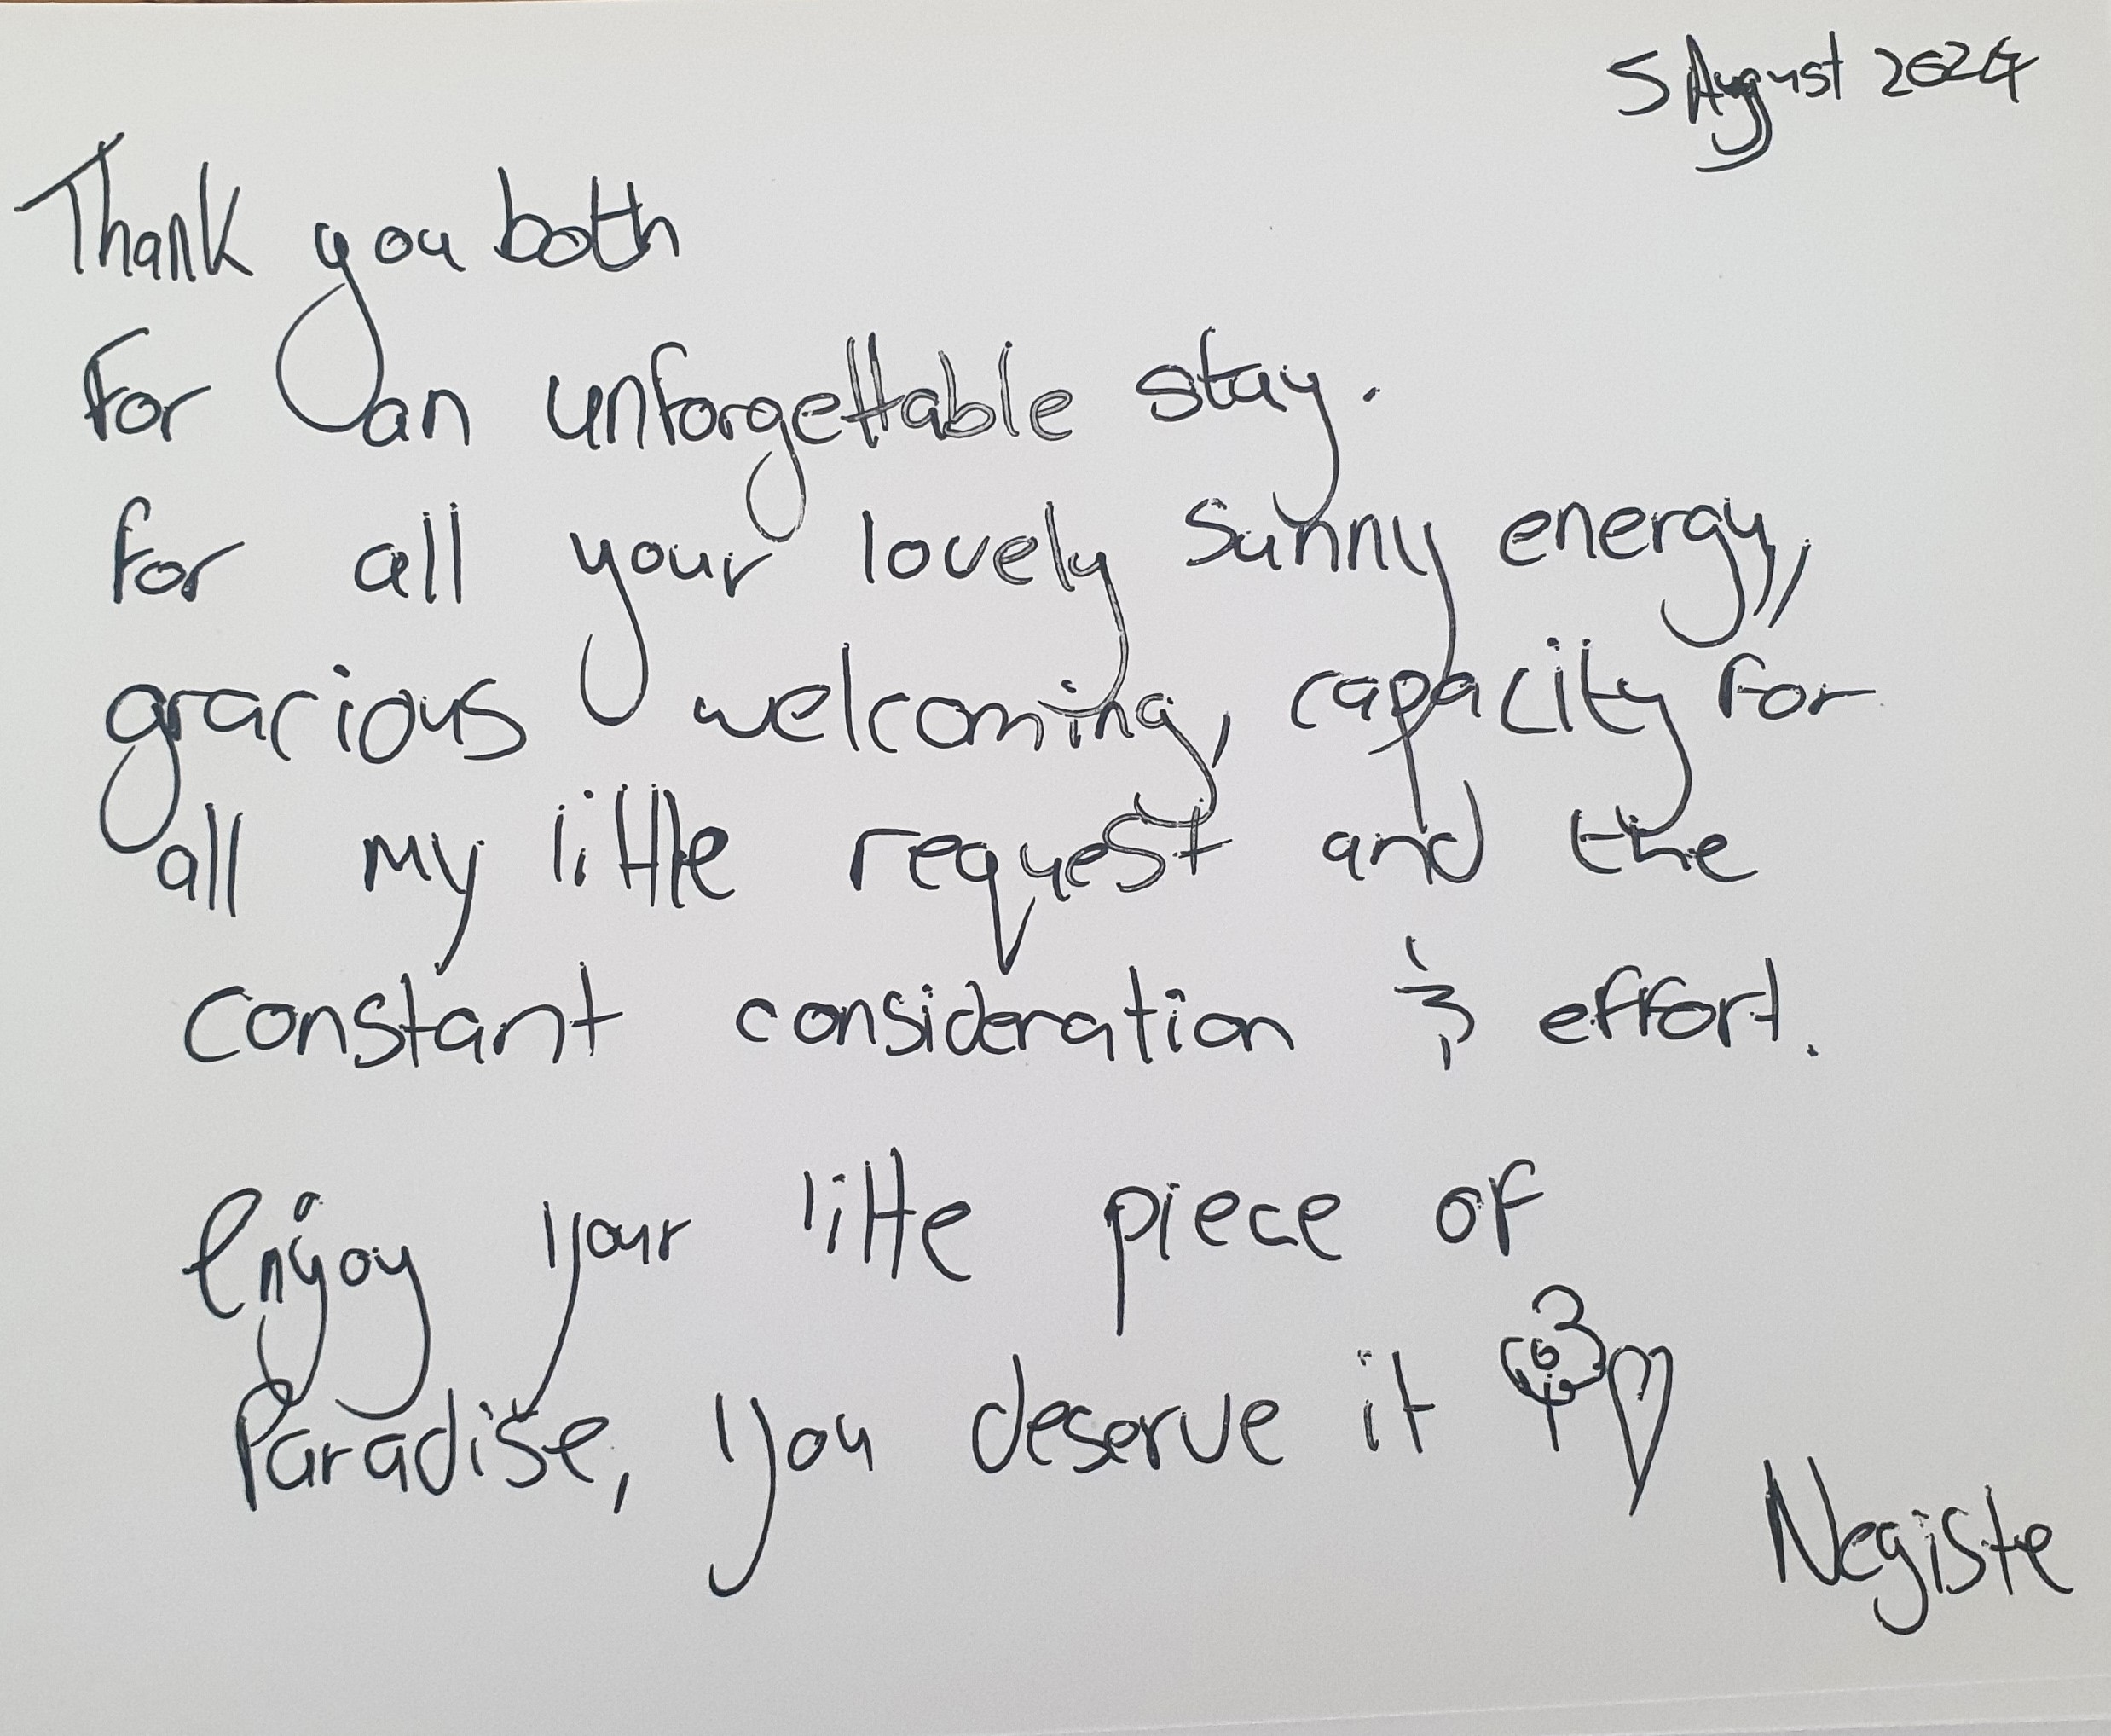 5 August 2024
Thank you both
For an unforgettable stay.
for all your lovely sunny energy,
gracious welcoming, capacity for
all my little request and the
constant consideration & effort.
enjoy your little piece of
Paradise, you deserve it
Negiste